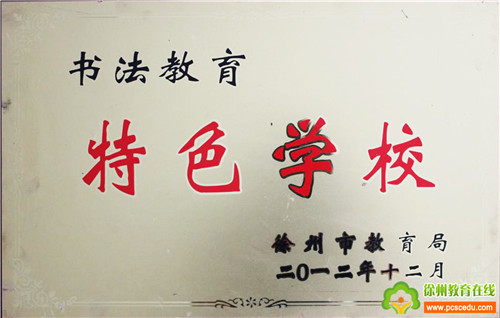 书法教育
特色学校
徐州市教育局
二〇一二年十二月
徐州教育在线
www.pcscedu.com